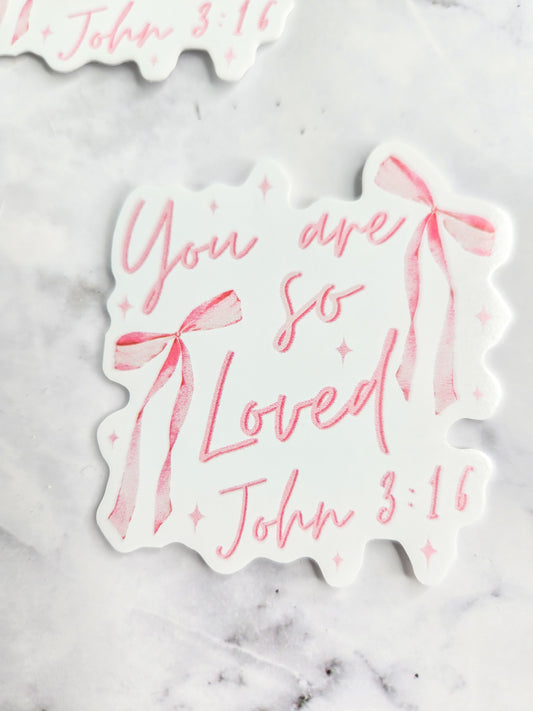 John 3:16
You are
so
Loved
John 3:16